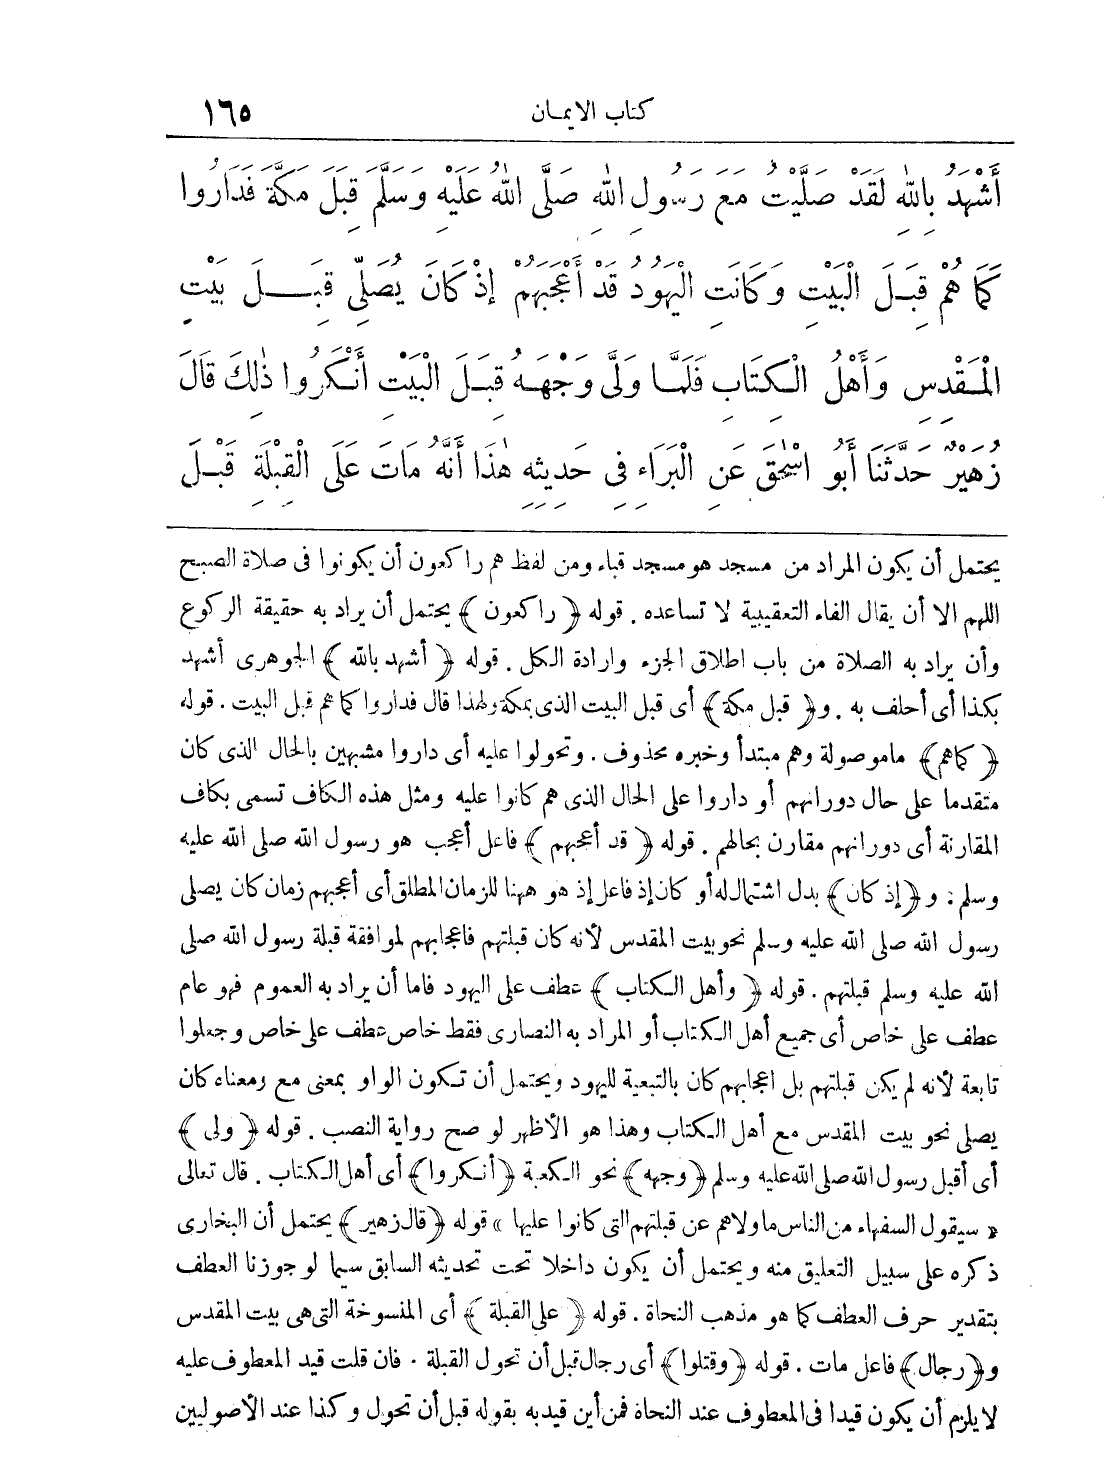 كتاب الايمان ١٦٥
أَشْهَدُ بِاللهِ لَقَدْ صَلَّيْتُ مَعَ رَسُولِ اللهِ صَلَّى اللهُ عَلَيْهِ وَسَلَّمَ قِبَلَ مَكَّةَ فَدَارُوا
كَمَا هُمْ قِبَلَ الْبَيْتِ وَكَانَتِ الْيَهُودُ قَدْ أَعْجَبَهُمْ إِذْ كَانَ يُصَلِّي قِبَلَ بَيْتِ
الْمَقْدِسِ وَأَهْلُ الْكِتَابِ فَلَمَّا وَلَّى وَجْهَهُ قِبَلَ الْبَيْتِ أَنْكَرُوا ذٰلِكَ قَالَ
زُهَيْرٌ حَدَّثَنَا أَبُو اسْحٰقَ عَنِ الْبَرَاءِ فِي حَدِيثِهِ هٰذَا أَنَّهُ مَاتَ عَلَى الْقِبْلَةِ قَبْلَ
يحتمل أن يكون المراد من مسجد هو مسجد قباء ومن لفظ هم راكعون أن يكونوا فى صلاة الصبح
اللهم الا أن يقال الفاء التعقيبية لا تساعده . قوله ﴿راكعون﴾ يحتمل أن يراد به حقيقة الركوع
وأن يراد به الصلاة من باب اطلاق الجزء وارادة الكل . قوله ﴿أشهد بالله﴾ الجوهرى أشهد
بكذا أى أحلف به . و﴿قبل مكة﴾ أى قبل البيت الذى بمكة ولهذا قال فداروا كما هم قبل البيت . قوله
﴿كماهم﴾ ماموصولة وهم مبتدأ وخبره محذوف . وتحولوا عليه أى داروا مشبهين بالحال الذى كان
متقدما على حال دورانهم أو داروا على الحال الذى هم كانوا عليه ومثل هذه الكاف تسمى بكاف
المقارنة أى دورانهم مقارن بحالهم . قوله ﴿قد أعجبهم﴾ فاعل أعجب هو رسول الله صلى الله عليه
وسلم : و﴿إذ كان﴾ بدل اشتمال له أو كان إذ فاعل إذ هو ههنا للزمان المطلق أى أعجبهم زمان كان يصلى
رسول الله صلى الله عليه وسلم نحو بيت المقدس لأنه كان قبلتهم فاعجابهم لموافقة قبلة رسول الله صلى
الله عليه وسلم قبلتهم . قوله ﴿وأهل الكتاب﴾ عطف على اليهود فاما أن يراد به العموم فهو عام
عطف على خاص أى جميع أهل الكتاب أو المراد به النصارى فقط خاص عطف على خاص وجعلوا
تابعة لأنه لم يكن قبلتهم بل اعجابهم كان بالتبعية لليهود ويحتمل أن تكون الواو بمعنى مع رمعناه كان
يصلى نحو بيت المقدس مع أهل الكتاب وهذا هو الأظهر لو صح رواية النصب . قوله ﴿ولى﴾
أى أقبل رسول الله صلى الله عليه وسلم ﴿وجهه﴾ نحو الكعبة ﴿أنكروا﴾ أى أهل الكتاب . قال تعالى
« سيقول السفهاء من الناس ماولاهم عن قبلتهم التى كانوا عليها » قوله ﴿قال زهير﴾ يحتمل أن البخارى
ذكره على سبيل التعليق منه ويحتمل أن يكون داخلا تحت تحديثه السابق سيما لو جوزنا العطف
بتقدير حرف العطف كما هو مذهب النحاة . قوله ﴿على القبلة﴾ أى المنسوخة التى هى بيت المقدس
و﴿رجال﴾ فاعل مات . قوله ﴿وقتلوا﴾ أى رجال قبل أن تحول القبلة . فان قلت قيد المعطوف عليه
لايلزم أن يكون قيدا فى المعطوف عند النحاة فمن أين قيد به بقوله قبل أن تحول وكذا عند الأصوليين